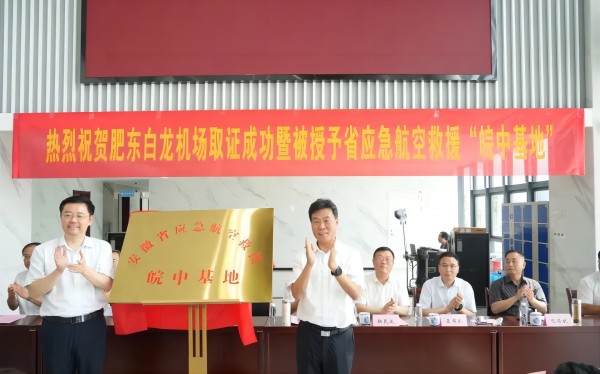 热烈祝贺肥东白龙机场取证成功暨被授予省应急航空救援“皖中基地”
安徽省应急航空救援
皖中基地